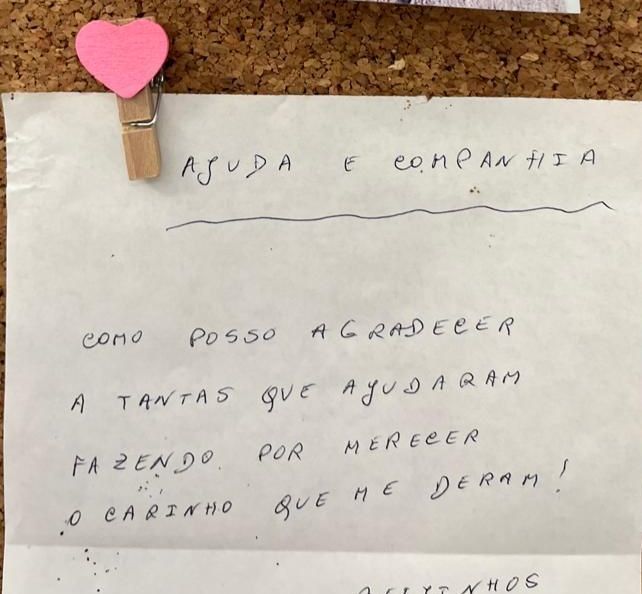 AJUDA E COMPANHIA
COMO POSSO AGRADECER
A TANTAS QUE AJUDARAM
FAZENDO POR MERECER
O CARINHO QUE ME DERAM!